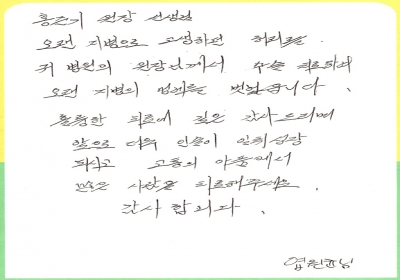 홍근기 원장 선생님
오랜 지병으로 고생하던 허리를
귀 병원의 원장님께서 수술 치료하여
오랜 지병의 멍에를 벗었습니다.
훌륭한 치료에 깊은 감사드리며
앞으로 더욱 인술이 일취월장
하시고 고통의 아픔에서
많은 사람을 치료해주세요.
감사합니다.